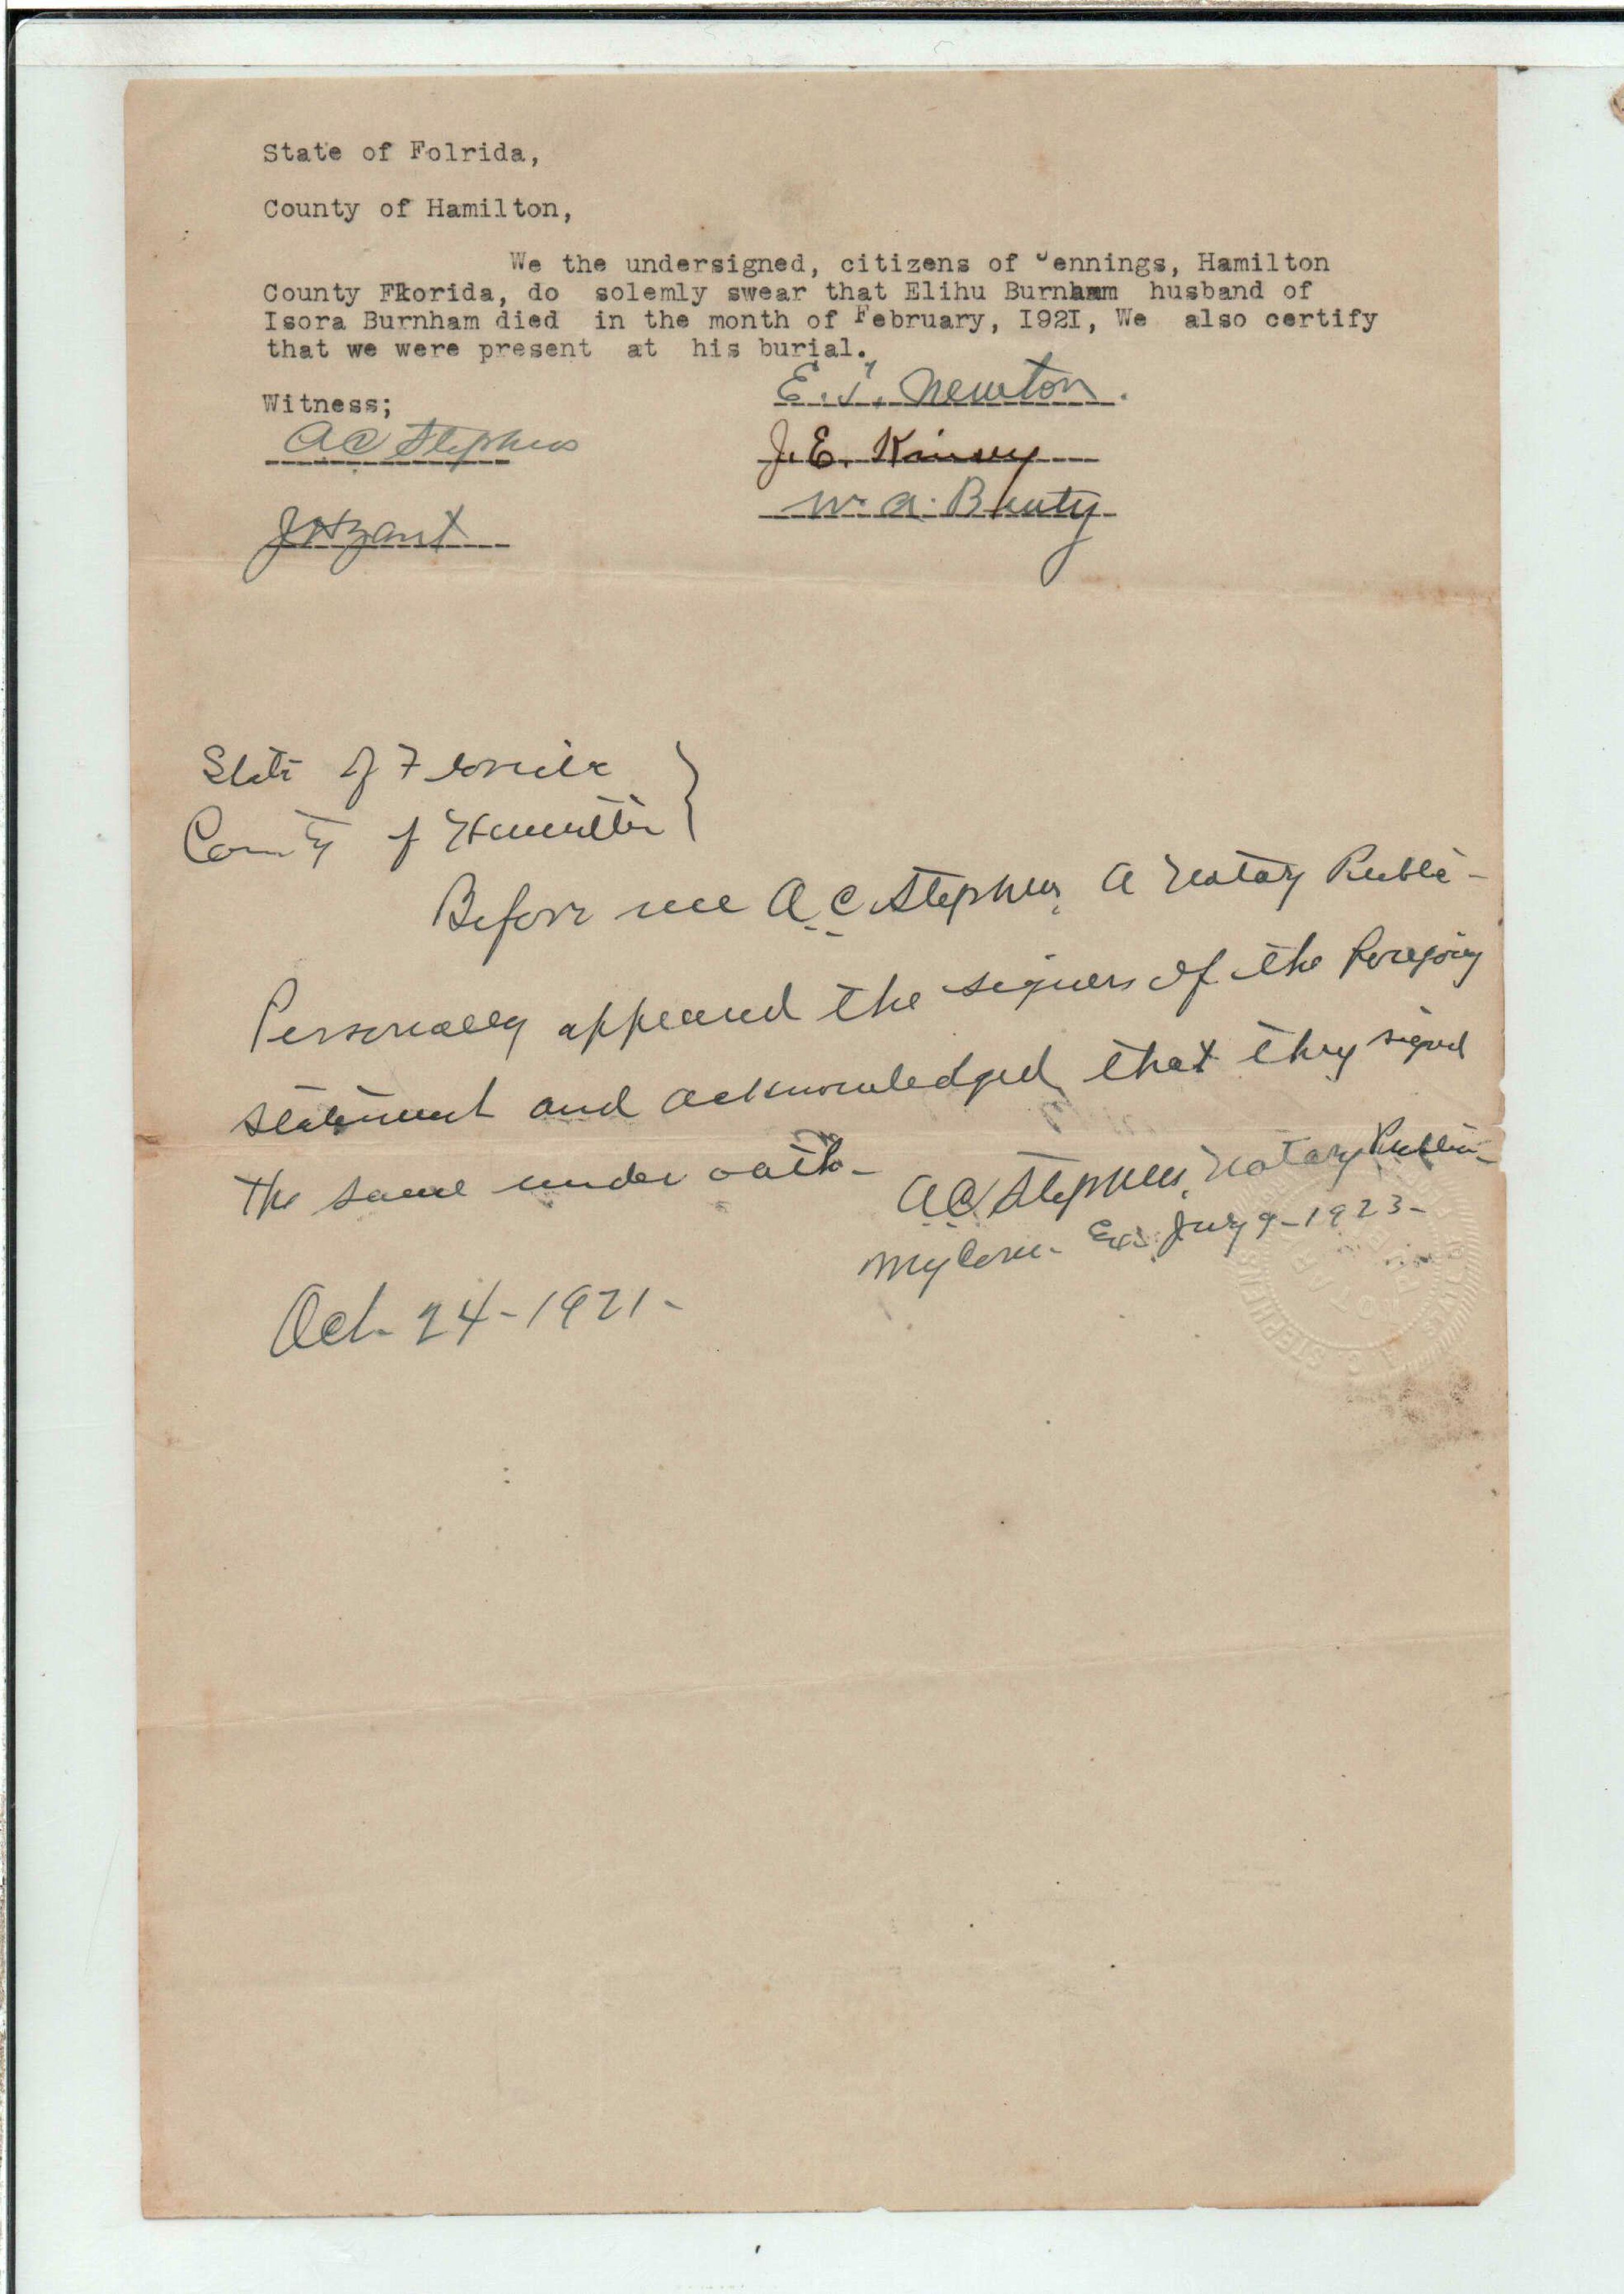 State of Folrida,
County of Hamilton,
We the undersigned, citizens of Jennings, Hamilton
County Florida, do solemly swear that Elihu Burnham husband of
Isora Burnham died in the month of February, I92I, We also certify
that we were present at his burial.
E. T. Newton.
Witness;
A C Stephens
J. E. Kinsey
W. A.
J H Zant
State of Florida
County of Hamilton
Before me A. C. Stephens, A Notary Public-
Personally appeared the signers of the foregoing
statement and acknowledged that they signed
the same under oath-
A C Stephens, Notary Public-
My Com- Ex. July 9-1923-
Oct- 24-1921-